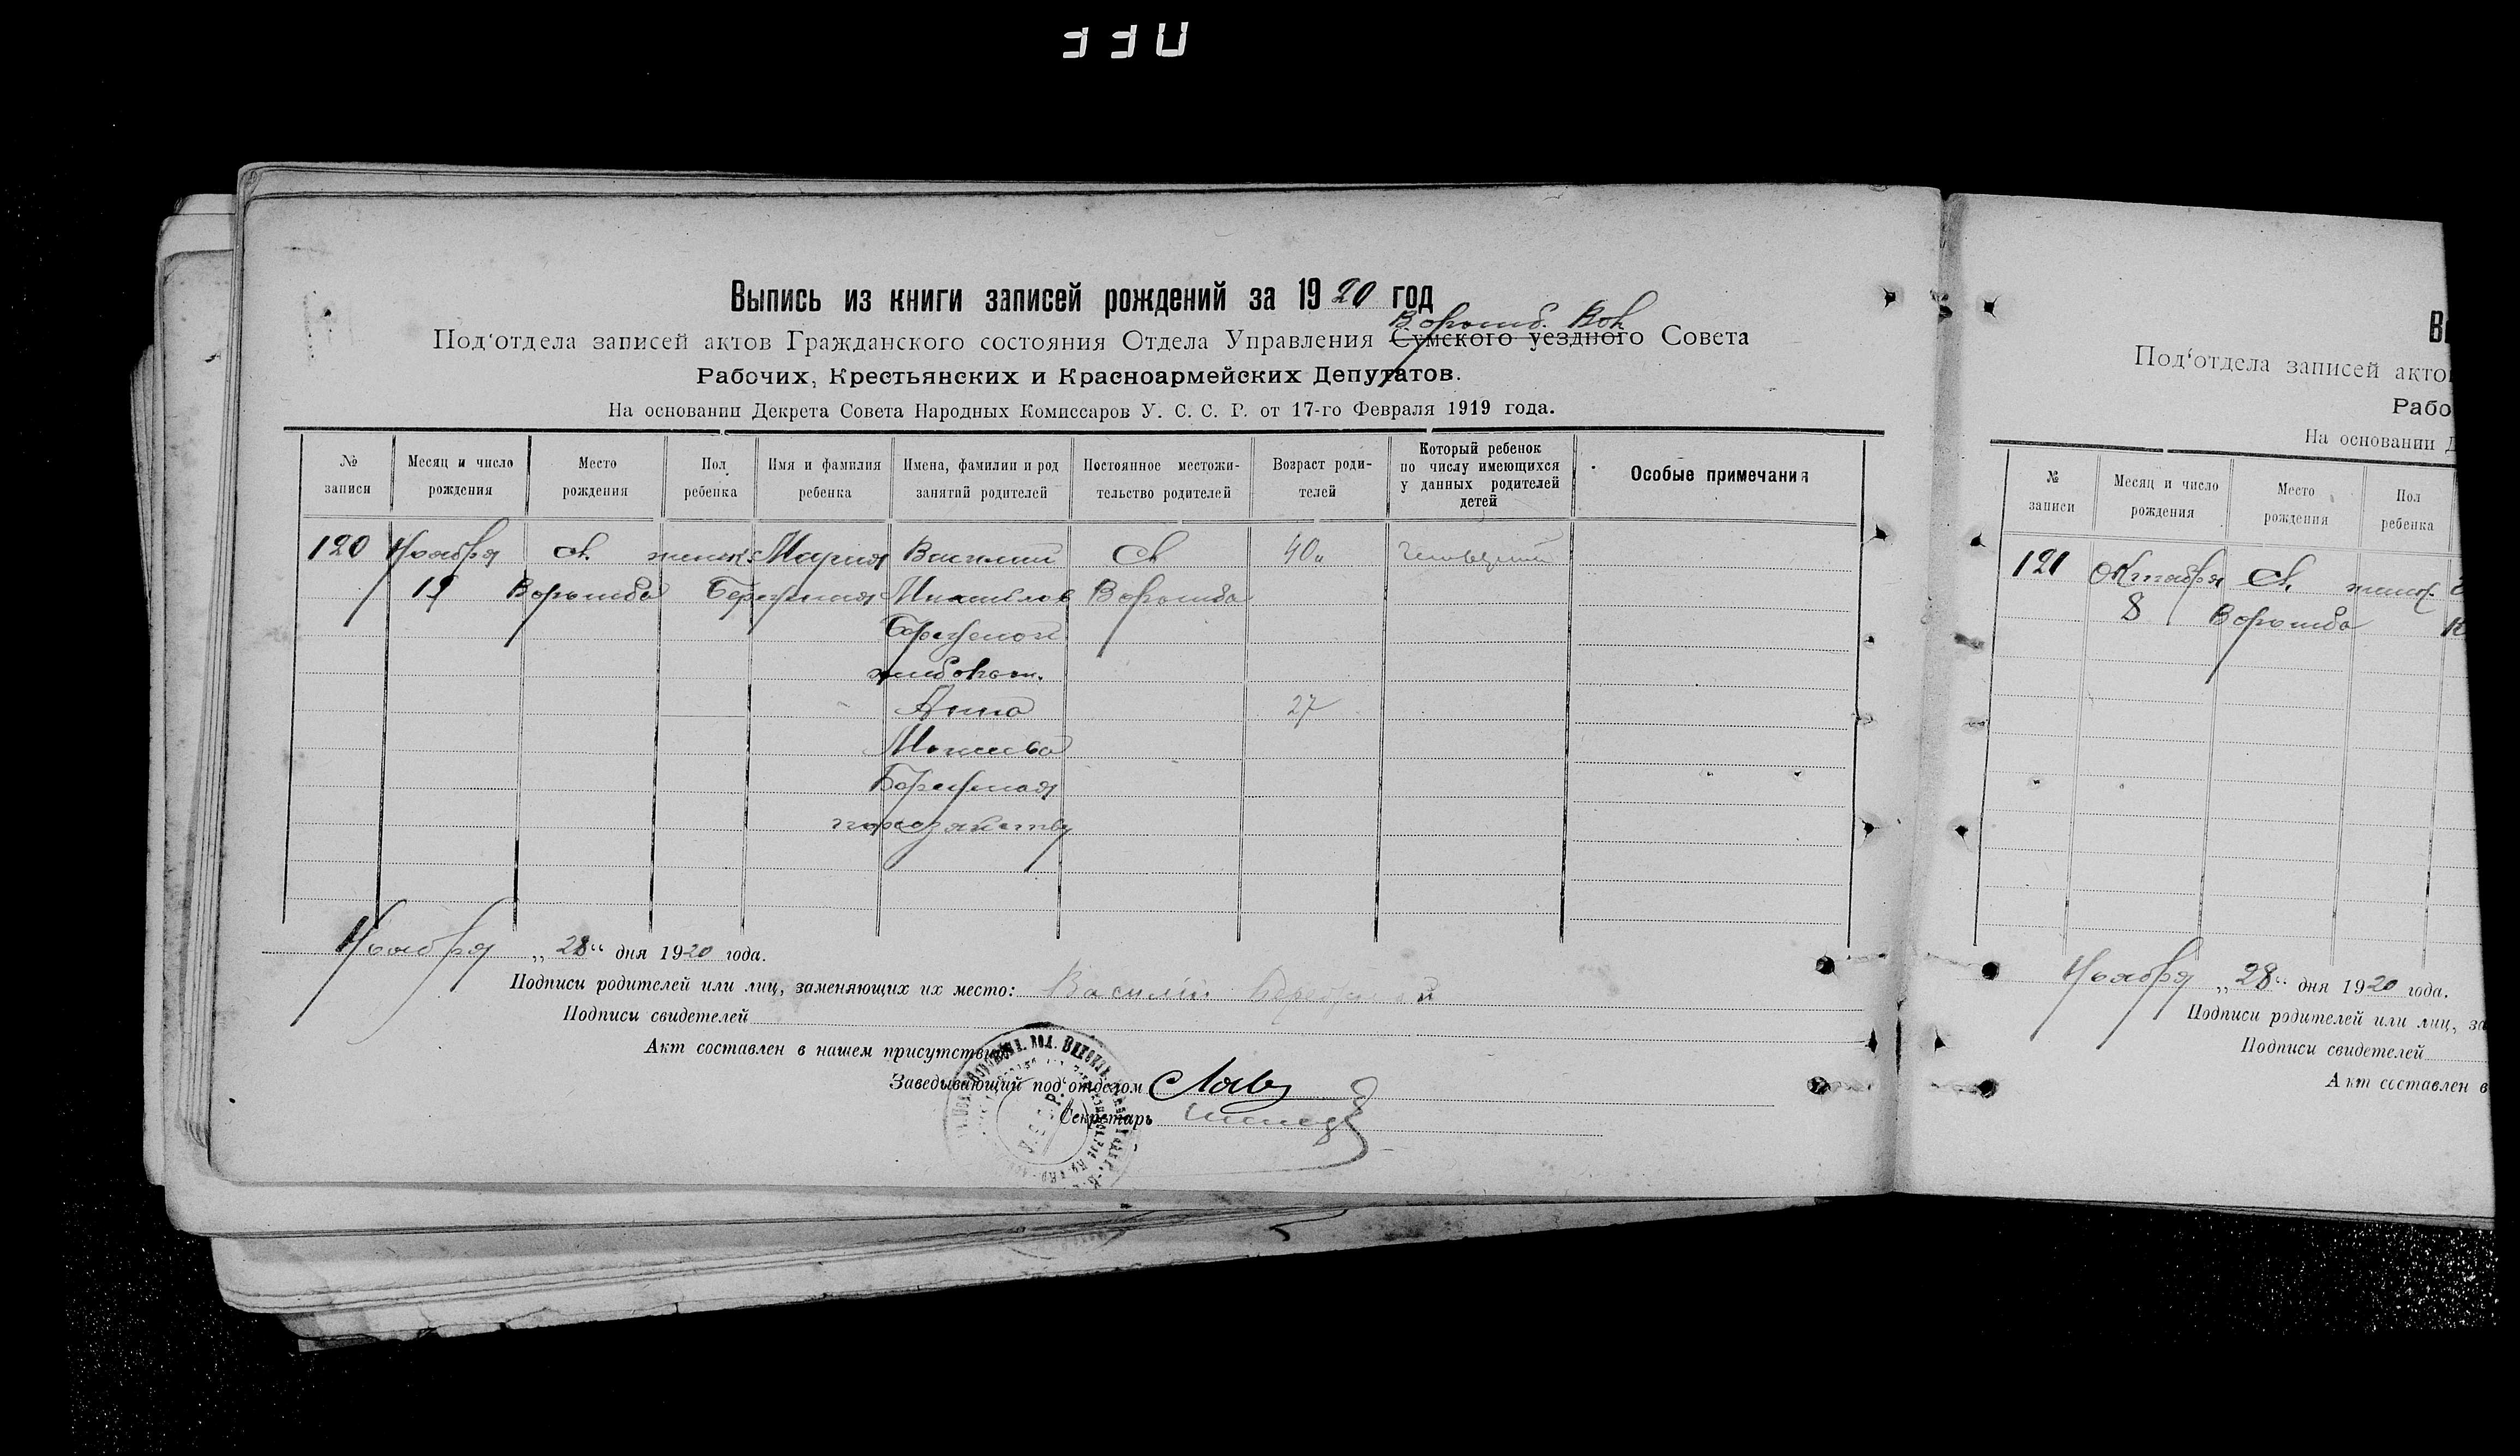 330
Выпись из книги записей рождений за 1920 год
Ворожб. Вол
Под‘отдела записей актов Гражданского состояния Отдела Управления Сумского уездного Совета
Рабочих, Крестьянских и Красноармейских Депутатов.
На основании Декрета Совета Народных Комиссаров У. С. С. Р. от 17-го Февраля 1919 года.
№ записи
Месяц и число рождения
Место рождения
Пол ребенка
Имя и фамилия ребенка
Имена, фамилии и род занятий родителей
Постоянное местожительство родителей
Возраст родителей
Который ребенок по числу имеющихся у данных родителей детей
Особые примечания
120 Ноября сл. женск. Мария Василий Сл 40
19 Ворожба Ворожба
хлебопаш.
Анна 27
Ноября „28“ дня 1920 года.
Подписи родителей или лиц, заменяющих их место: Василий
Подписи свидетелей
Акт составлен в нашем присутствии
Заведывающий под‘отделом
Секретарь
Под‘отдела записей акто
Рабо
На основании Д
№ записи
Месяц и число рождения
Место рождения
Пол ребенка
121 Октября Сл. женск.
8 Ворожба
Ноября „28“ дня 1920 года.
Подписи родителей или лиц, за
Подписи свидетелей
Акт составлен в